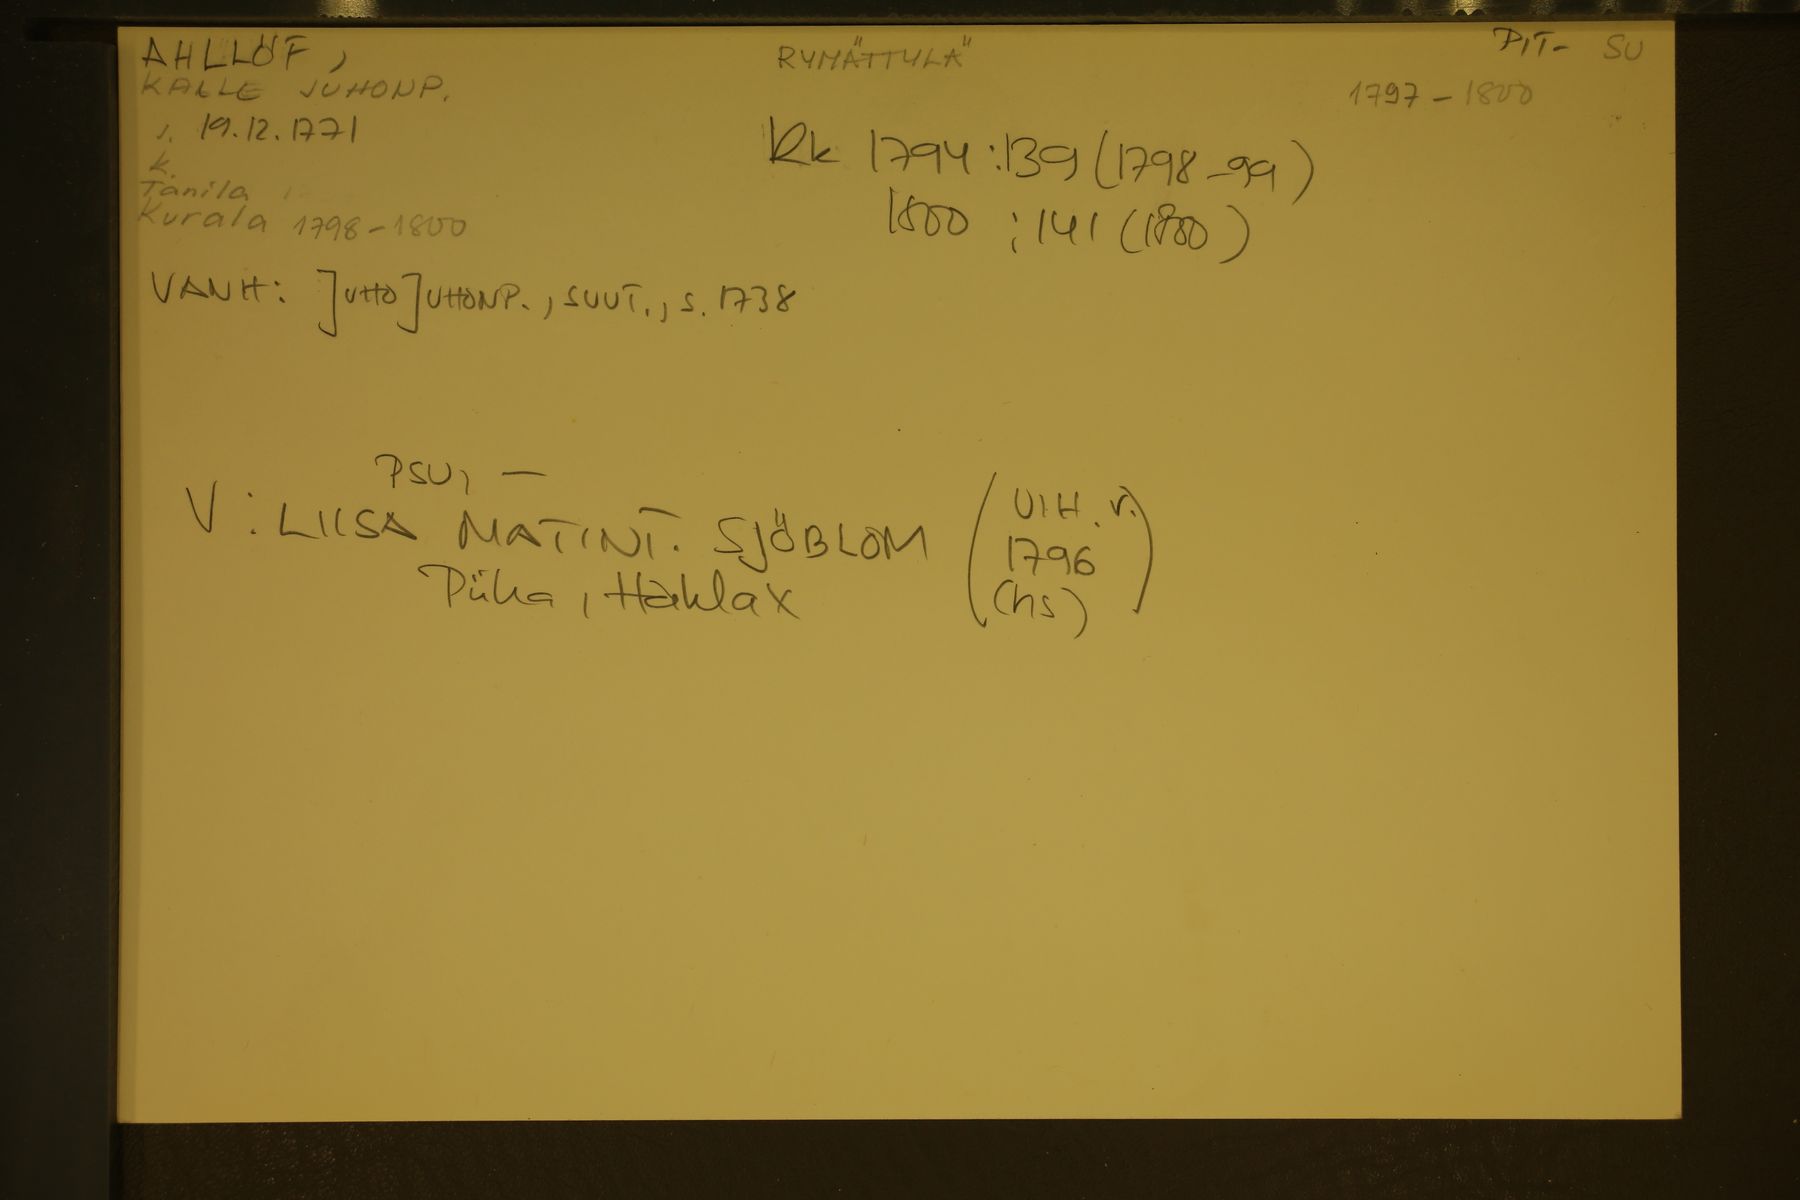 AHLLÖF, RYMÄTTYLÄ PIT- SU
KALLE JUHONP. 1797-1800
s. 19.12.1771
k.
Tanila
Kurala 1798-1800
Rk 1794:139 (1798-99)
1800 :141 (1800)
VANH: JUHO JUHONP., SUUT., s. 1738
PSU, —
V: LIISA MATINT. SJÖBLOM
Piika, Haklax
(VIH. v.
1796
(hs))